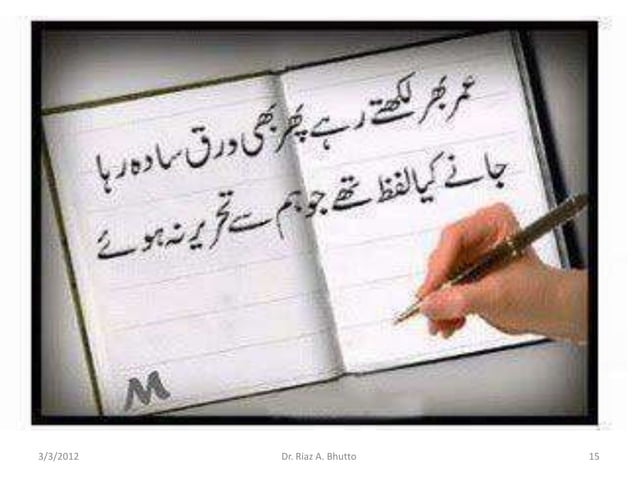 عمر بھر لکھتے رہے پھر بھی ورق سادہ رہا
جانے کیا لفظ تھے جو ہم سے تحریر نہ ہوئے
M
3/3/2012
Dr. Riaz A. Bhutto
15